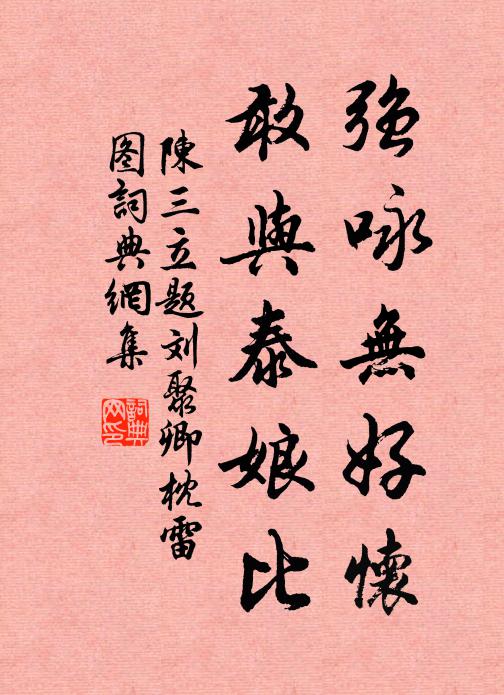 強咏無好懷
敢與泰娘比
陳三立题刘聚卿枕雷
图詞典網集
詞典网印